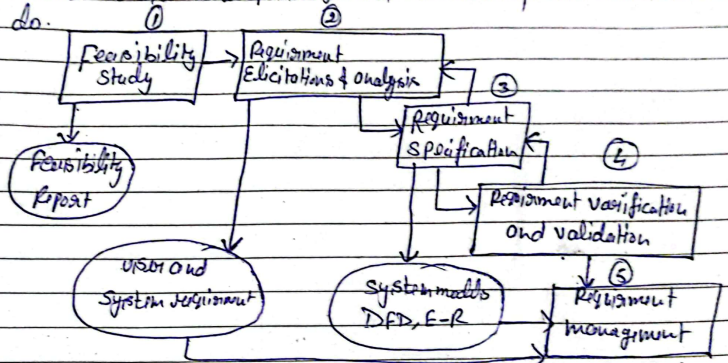 do.
①
②
Feasibility
Study
Requirment
Elicitations & analysis
③
Requirment
Specification
④
Feasibility
Report
Requirment varification
and validation
user and
System requirment
System models
DFD, E-R
⑤
Requirment
management